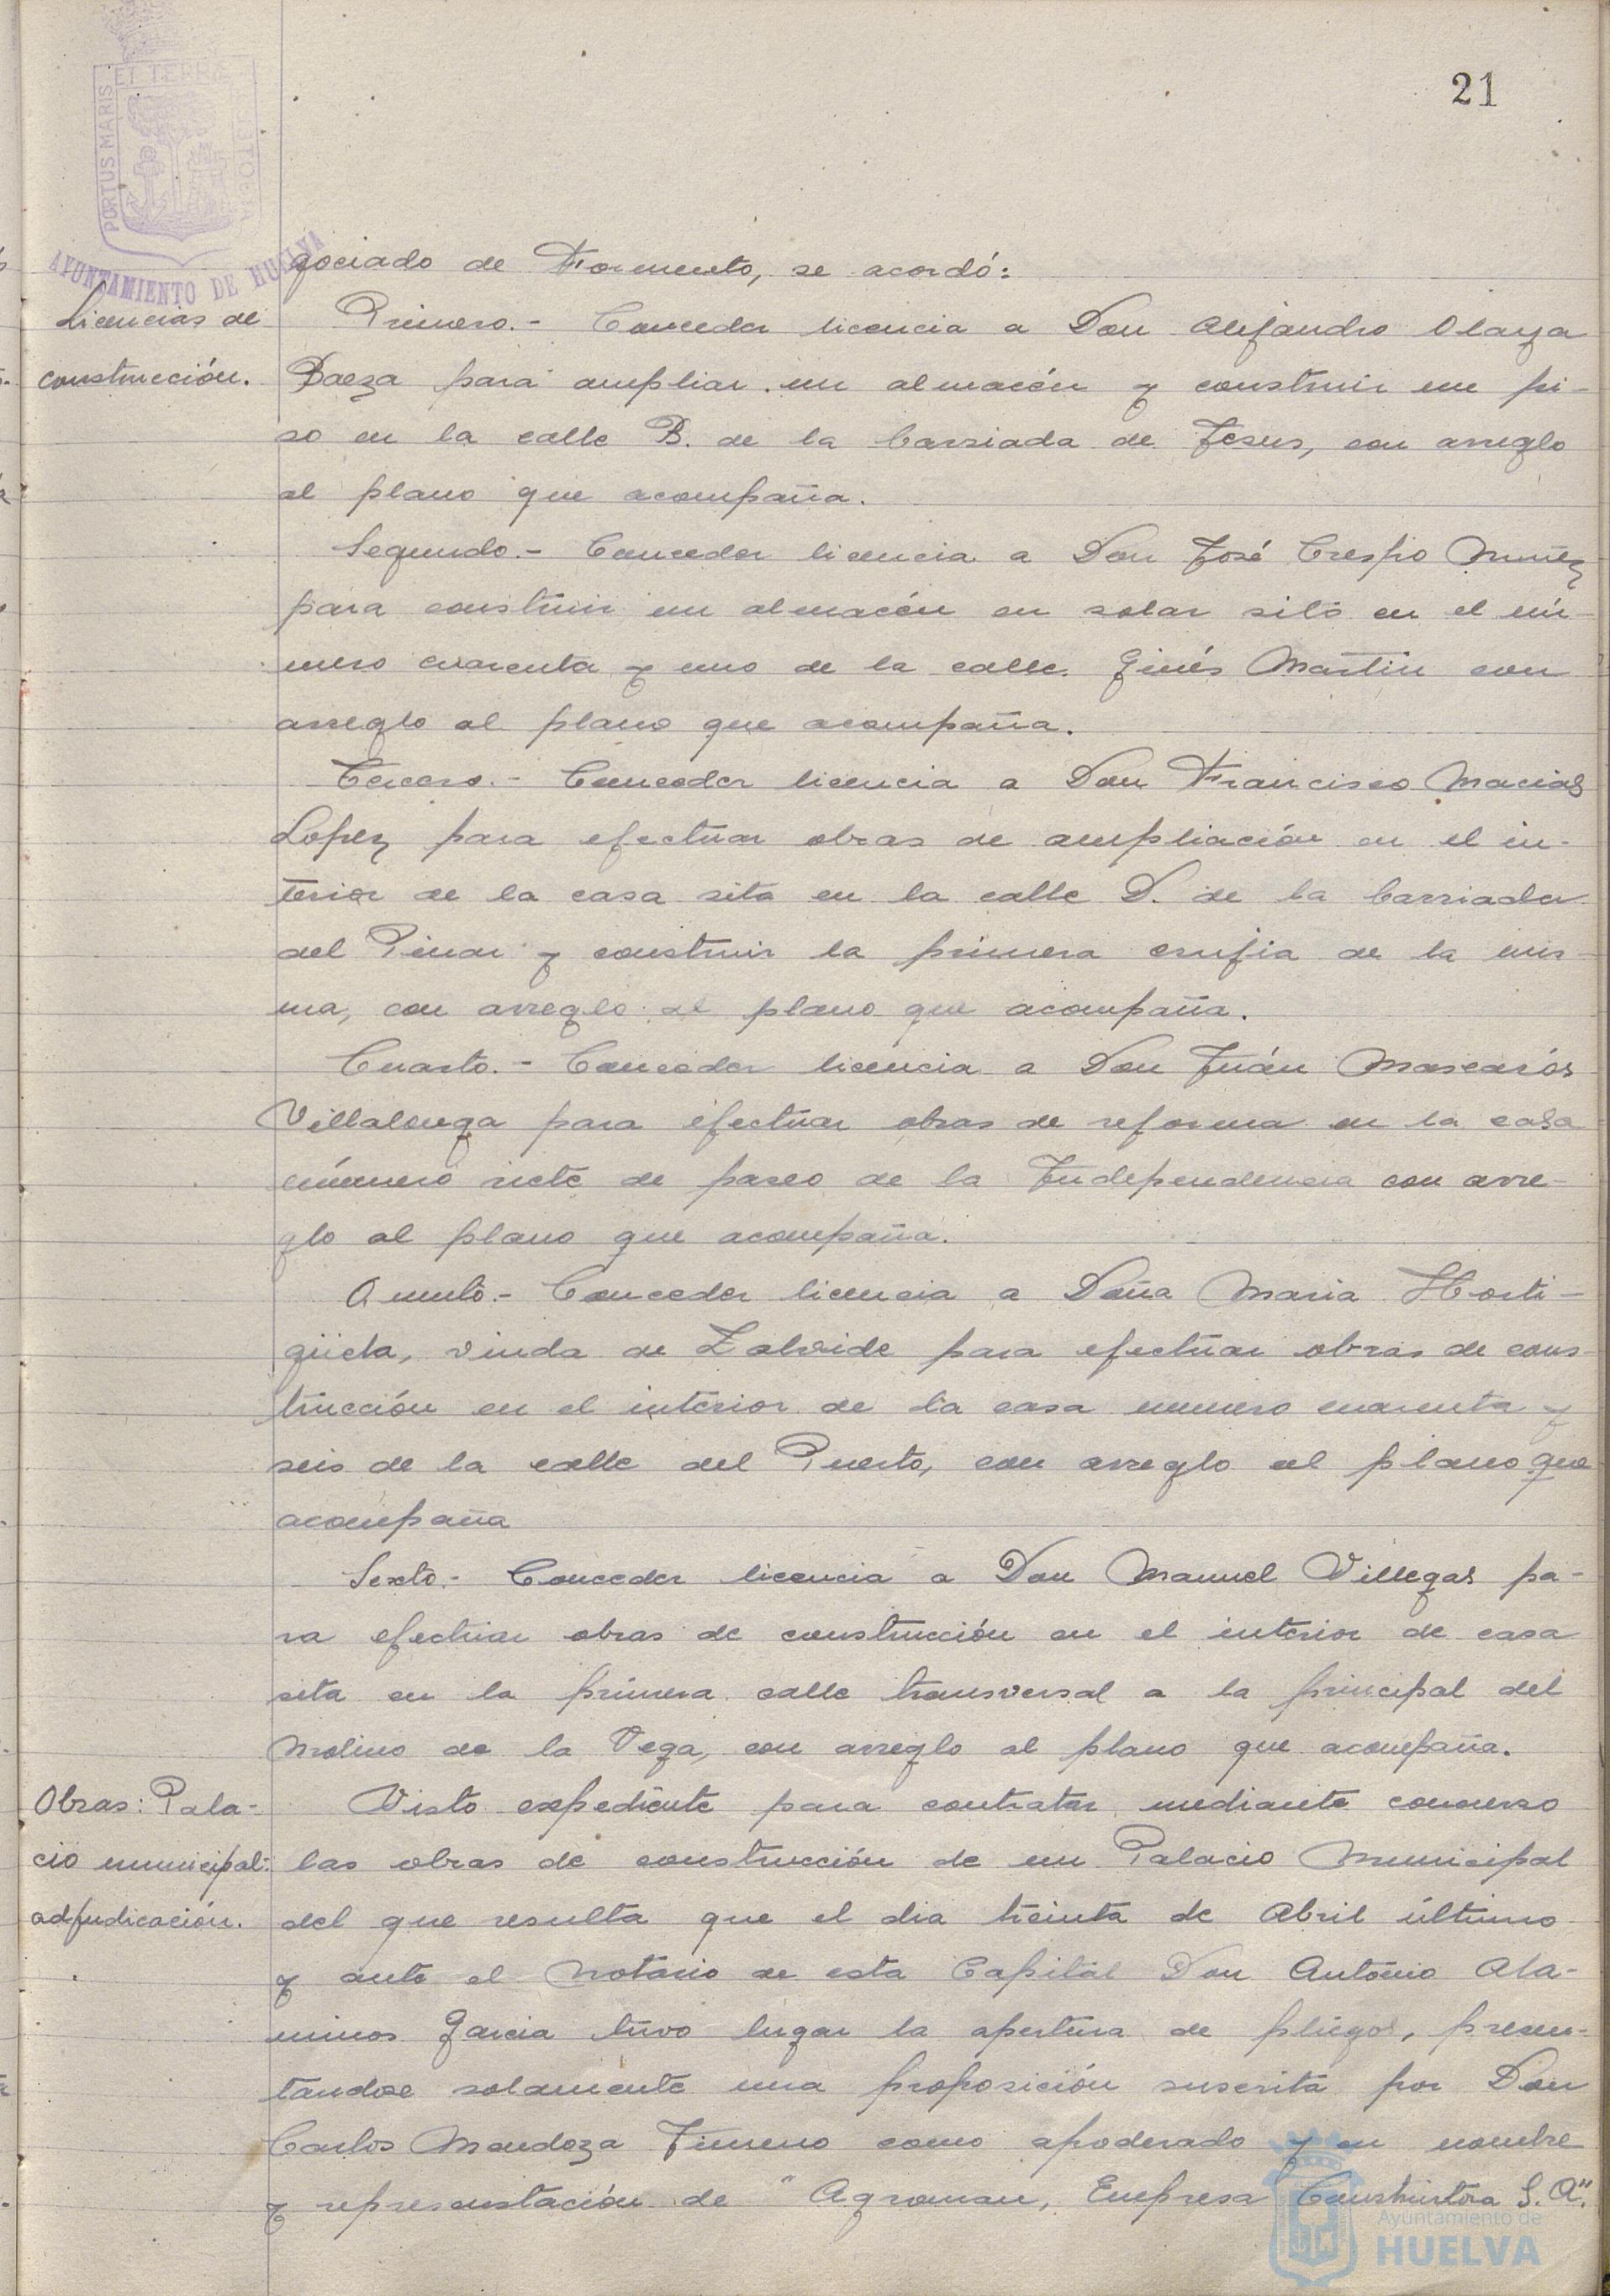 21
PORTUS MARIS ET TERRÆ
AYUNTAMIENTO DE HUELVA
gociado de Fomento, se acordó:
Licencias de
construcción.
Primero.- Conceder licencia a Don Alejandro Olaya
Baeza para ampliar un almacén y construir un pi-
so en la calle B. de la barriada de Jesus, con arreglo
al plano que acompaña.
Segundo.- Conceder licencia a Don José Crespo Nuñez
para construir un almacén en solar sito en el nú-
mero cuarenta y uno de la calle Ginés Martin con
arreglo al plano que acompaña.
Tercero.- Conceder licencia a Don Francisco Macias
Lopez para efectuar obras de ampliación en el in-
terior de la casa sita en la calle D. de la barriada
del Pinar y construir la primera crujia de la mis-
ma, con arreglo al plano que acompaña.
Cuarto.- Conceder licencia a Don Juán Mascarós
Villalonga para efectuar obras de reforma en la casa
número siete de paseo de la Independencia con arre-
glo al plano que acompaña.
Quinto.- Conceder licencia a Doña Maria Horti-
güela, viuda de Zalvide para efectuar obras de cons-
trucción en el interior de la casa numero cuarenta y
seis de la calle del Puerto, con arreglo al plano que
acompaña
Sexto.- Conceder licencia a Don Manuel Villegas pa-
ra efectuar obras de construcción en el interior de casa
sita en la primera calle transversal a la principal del
Molino de la Vega, con arreglo al plano que acompaña.
Obras: Pala-
cio municipal:
adjudicación.
Visto expediente para contratar mediante concurso
las obras de construcción de un Palacio Municipal
del que resulta que el dia treinta de Abril último
y ante el Notario de esta Capital Don Antonio Ala-
minos Garcia tuvo lugar la apertura de pliegos, presen-
tandose solamente una proposición suscrita por Don
Carlos Mendoza Jimeno como apoderado y en nombre
y representación de "Agroman, Empresa Constructora S. A".
Ayuntamiento de
HUELVA